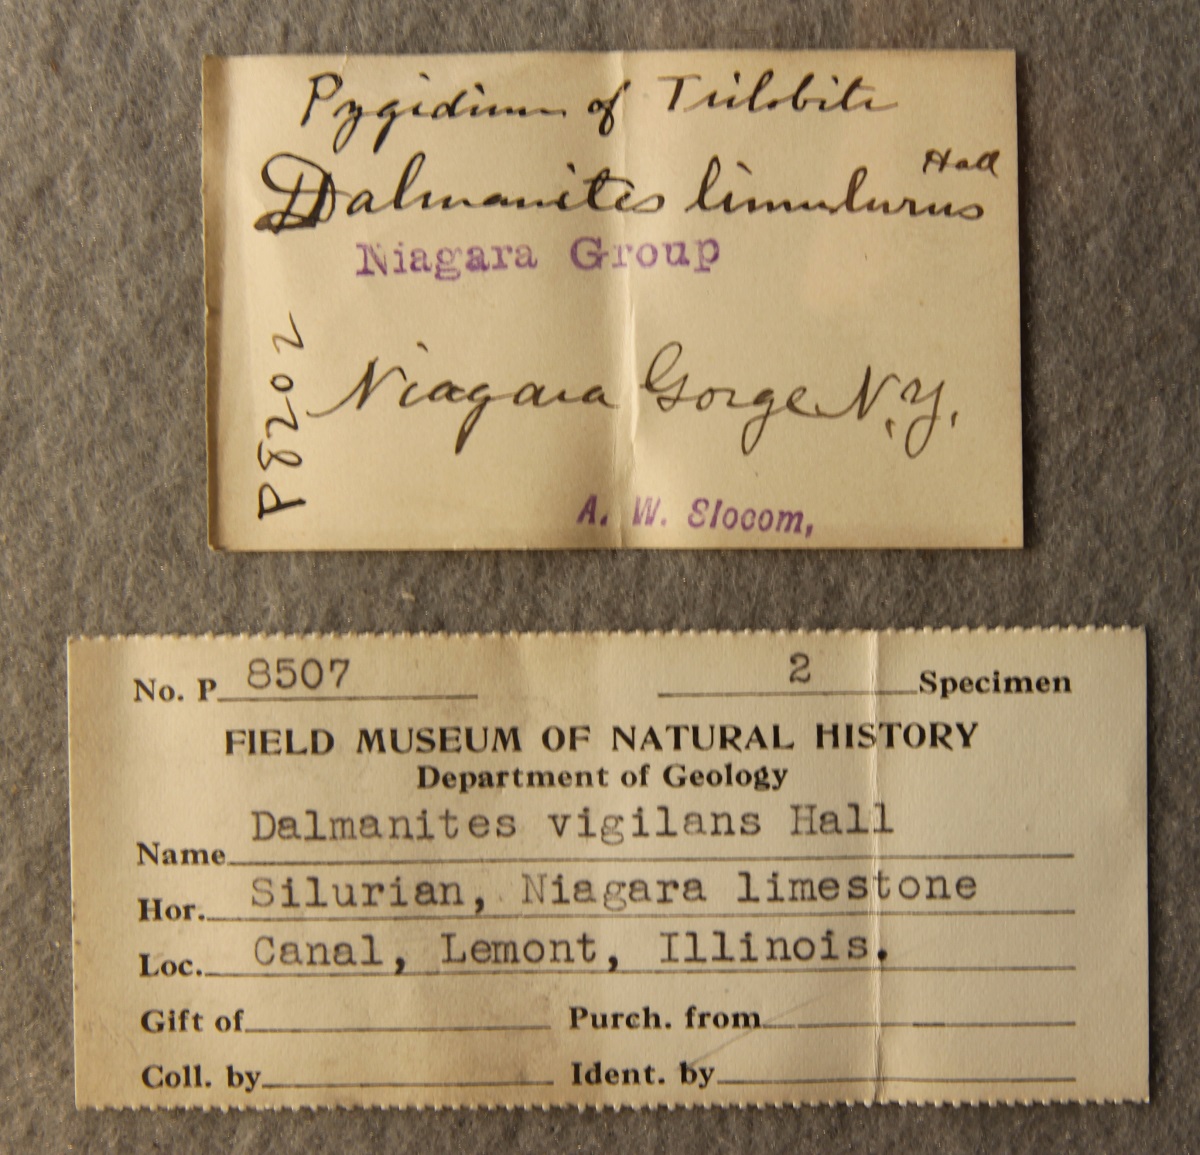 Pygidium of Trilobite
Hall
Dalmanites limulurus
Niagara Group
P8202
Niagara Gorge N.Y.
A. W. Slocom,
No. P 8507 2 Specimen
FIELD MUSEUM OF NATURAL HISTORY
Department of Geology
Name Dalmanites vigilans Hall
Hor. Silurian, Niagara limestone
Loc. Canal, Lemont, Illinois.
Gift of Purch. from
Coll. by Ident. by